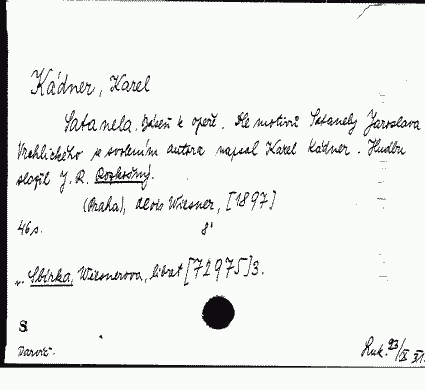 Kádner, Karel
Satanela. Báseň k opeře. Dle motivů Satanely Jaroslava
Vrchlického se svolením autora napsal Karel Kádner. Hudbu
složil J. R. Rozkošný.
(Praha), Alois Wiesner, [1897]
46 s. 8°
Sbírka, Wiesnerova, libret [72975] 3.
8
Darov.
Ruk. 93/